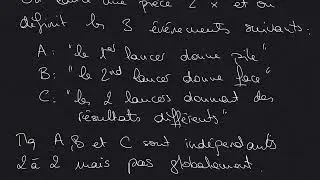 On lance une pièce 2 x et on
définit les 3 événements suivants:
A: "le 1er lancer donne pile"
B: "le 2nd lancer donne face"
C: "les 2 lancers donnent des
résultats différents"
Mq A, B et C sont indépendants
2 à 2 mais pas globalement.